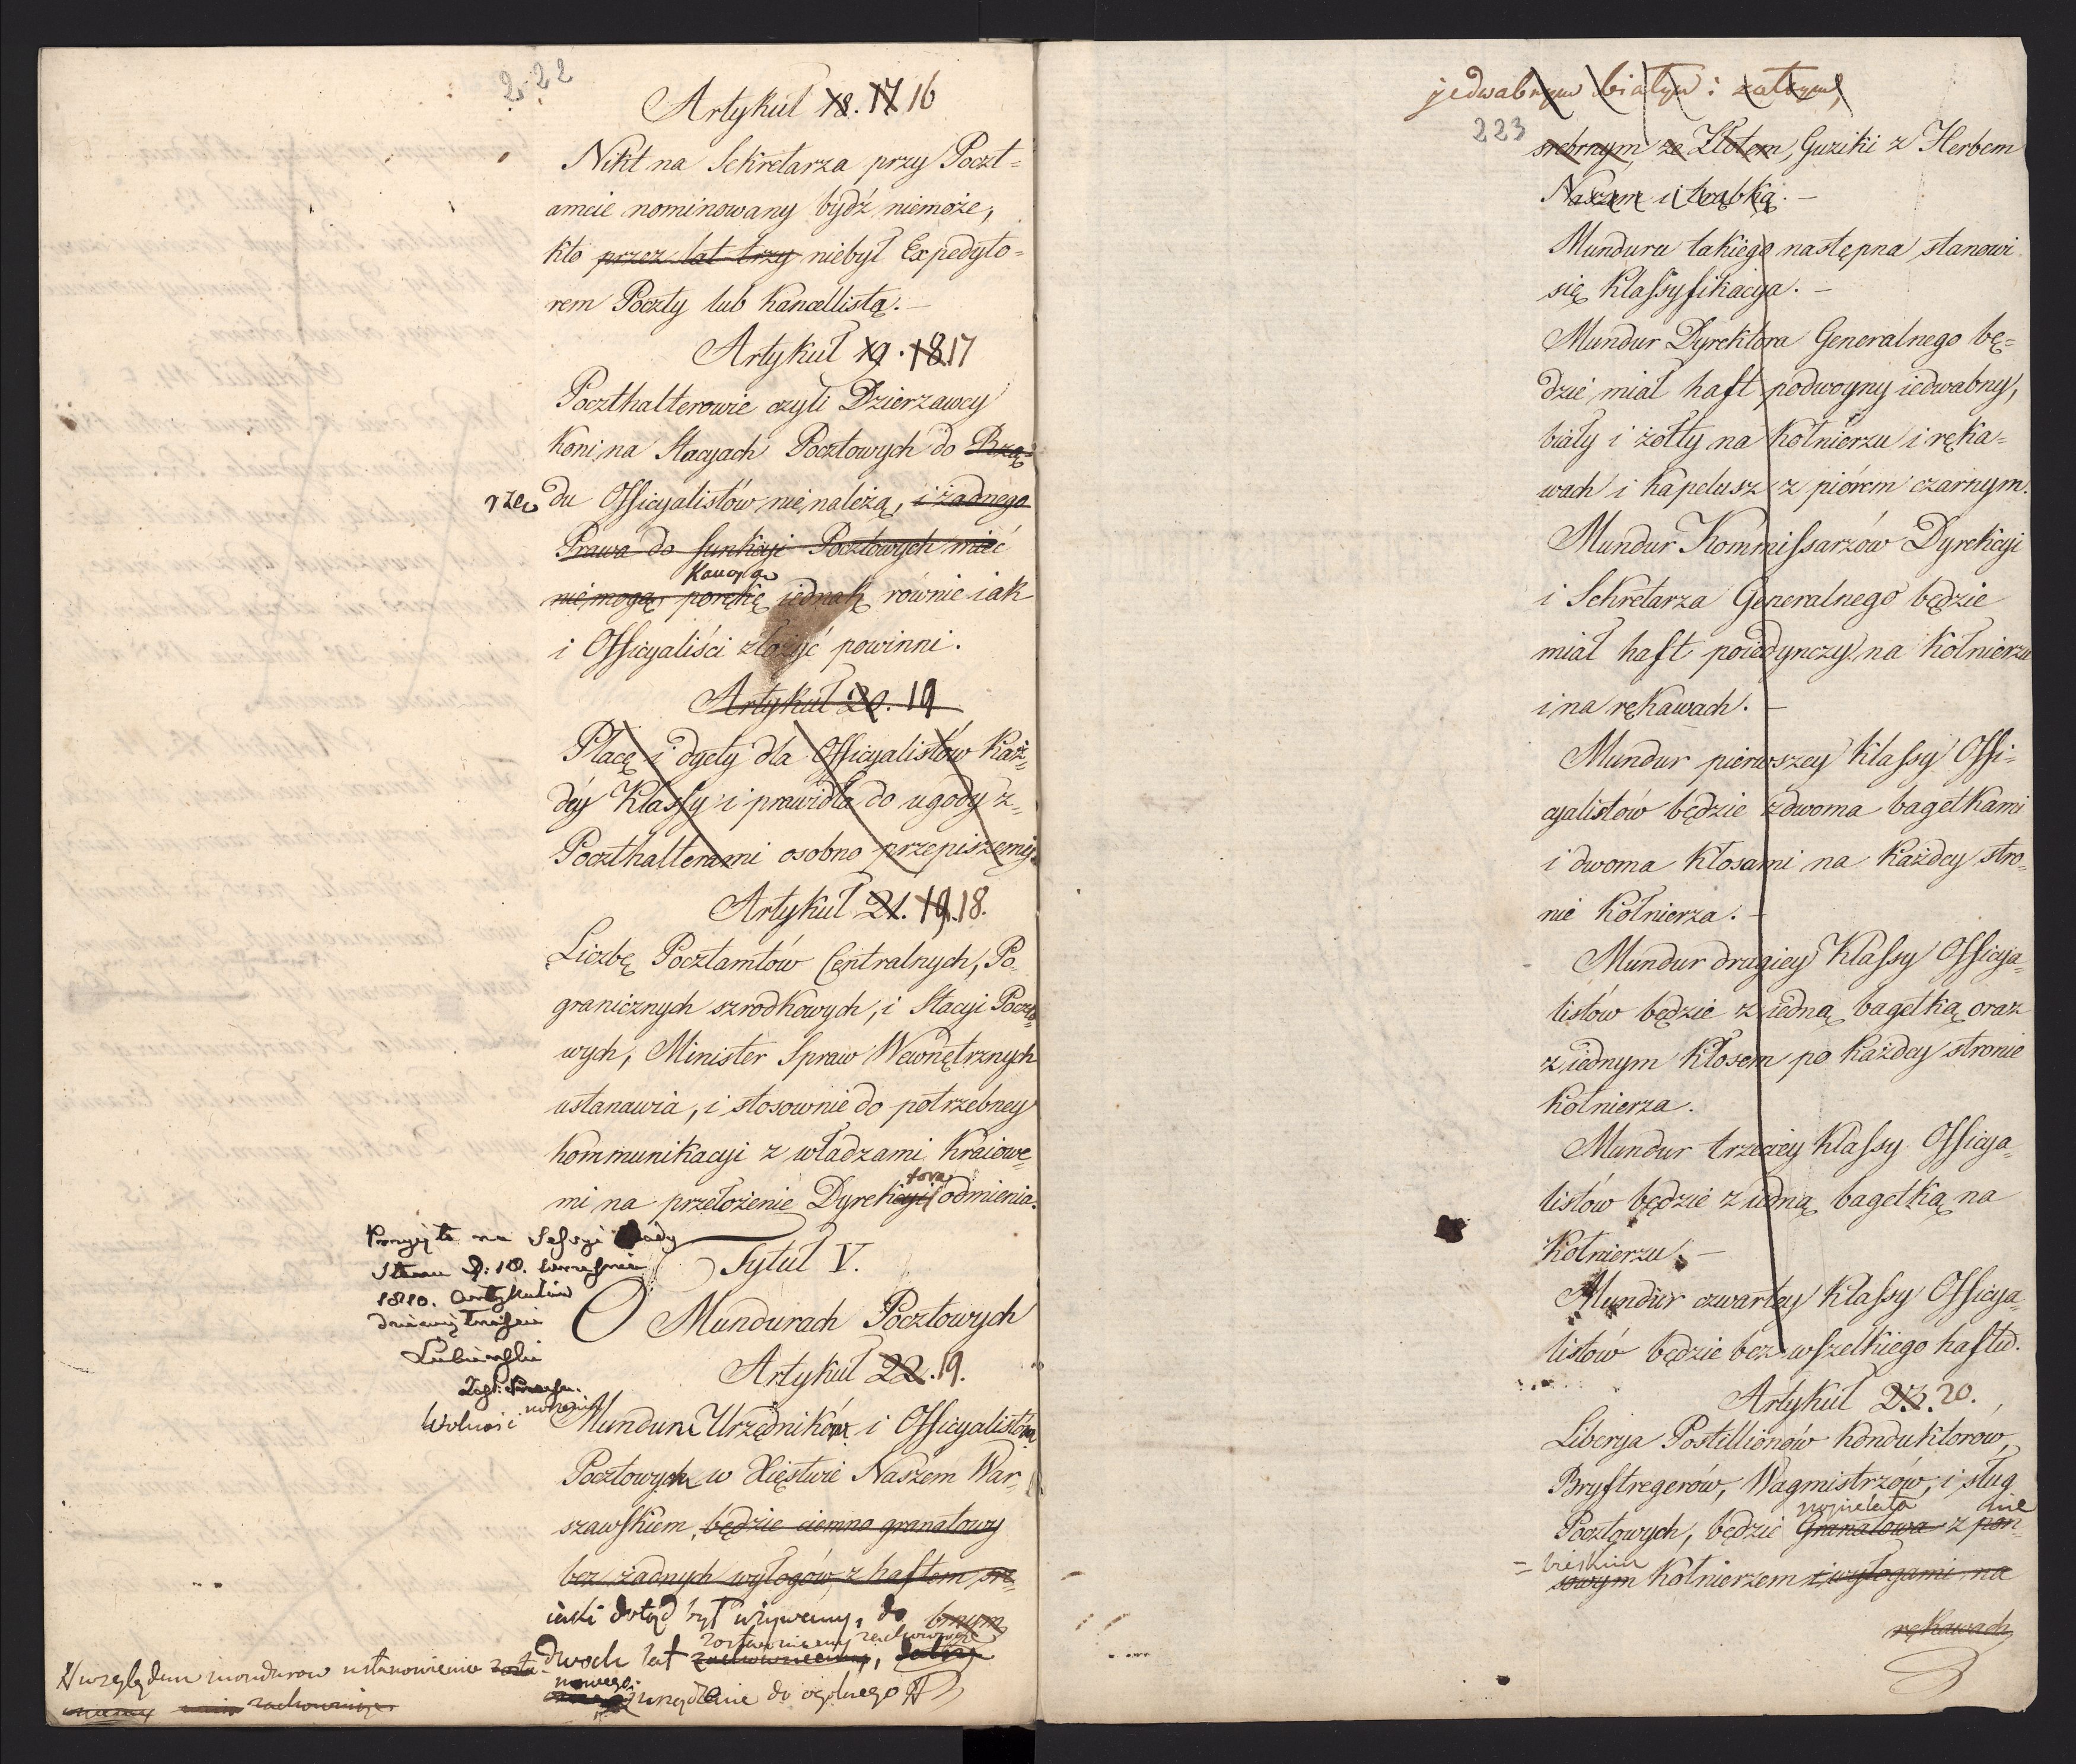 222
Artykuł 18. 17 16
Nikt na Sekretarza przy Poczt=
amcie nominowany bydź niemoże,
kto przez lat trzy niebył Expedyto=
rem Poczty lub Kancellistą. —
Artykuł 19. 18 17
Poczthalterowie czyli Dzierzawcy
Koni na Stacyach Pocztowych do Rzą=
rzę du Officyalistów nie należą, i żadnego
Prawa do funkcyi Pocztowych mieć
Kaucyą
nie mogą porękę iednak równie iak
i Officyaliści złożyć powinni.
Artykuł 20. 19
Płacę i dyety dla Officyalistów Każ=
dey Klassy i prawidła do ugody z=
Poczthalterami osobno przepiszemy.
Artykuł 21. 19. 18.
Liczbę Pocztamtów Centralnych, Po=
granicznych szrodkowych, i Stacyi Poczto=
wych, Minister Spraw Wewnętrznych
ustanawia, i stosownie do potrzebney
kommunikacyi z władzami Kraiowe=
tora
mi na przełożenie Dyrekcyi odmienia.
Przyięte na Sessyi Rady
Stanu d: 18. Września
1810. Artykułów
dziewiętnaście
Lubieński
Tytuł V.
O Mundurach Pocztowych
Artykuł 22. 19.
Wolność noszenia
Munduru Urzędników i Officyalistów
Pocztowych w Xięstwie Naszem War=
szawskiem, będzie ciemno granatowy
bez żadnych wyłogów z haftem sre=
brnym
iaki dotąd był używany, do
zostawuiemy zachowuiąc
dwoch lat zachowuiemy,
nowego
urządzenie do ogólnego
względem mondurow ustanowienia zosta
wiemy zachowuiąc
jedwabnym białym i żołtym,
223
srebrnym ze Złotem, Guziki z Herbem
Naszem i trąbką. —
Munduru takiego następna stanowi
się Klassyfikacya. —
Mundur Dyrektora Generalnego bę=
dzie miał haft podwoyny iedwabny,
biały i żołty na Kołnierzu i ręka=
wach i kapelusz z piórem czarnym.
Mundur Kommissarzów Dyrekcyi
i Sekretarza Generalnego będzie
miał haft poiedynczy na Kołnierzu
i na rękawach. —
Mundur pierwszey Klassy Offi=
cyalistów będzie z dwoma bagetkami
i dwoma Kłosami na Każdey stro=
nie Kołnierza. —
Mundur drugiey Klassy Officya=
listów będzie z iedną bagetką oraz
z iednym Kłosem po Każdey stronie
Kołnierza.
Mundur trzeciey Klassy Officya=
listów będzie z iedną bagetką na
Kołnierzu. —
Mundur czwartey Klassy Officya=
listów będzie bez wszelkiego haftu.
Artykuł 23. 20.
Liberya Postillionów Konduktorów,
Bryftregerów, Wagmistrzów, i sług
nie
Pocztowych, będzie Granatowa z pon=
= bieskim
sowym Kołnierzem i wyłogami na
rękawach